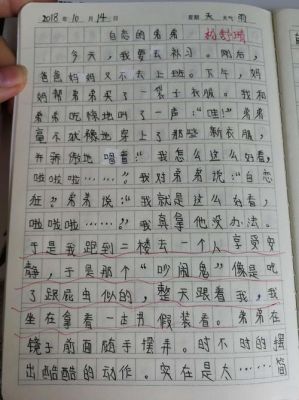 2018年10月14日 星期天 天气雨
自恋的弟弟
今天,我要去补习。刚后,
爸爸妈妈又不去上班。下午,妈
妈帮弟弟买了一袋子衣服。我和
弟弟吃惊地叫了一声:“哇!”弟弟
毫不犹豫地穿上了那些新衣服,
并 地唱着:“我怎么这么好看,
啦啦啦……”我对弟弟说:“自恋
狂!”弟弟说:“我就是这么好看,
啦啦啦……”我真拿他没办法。
于是我跑到二楼去一个人享受安
静,于是那个“吵闹鬼”像是吃
了跟屁虫似的,整天跟着我,我
坐在拿着一本书假装看。弟弟在
镜子前面随手摆弄。时不时的摆
出酷酷的动作。实在是太……简